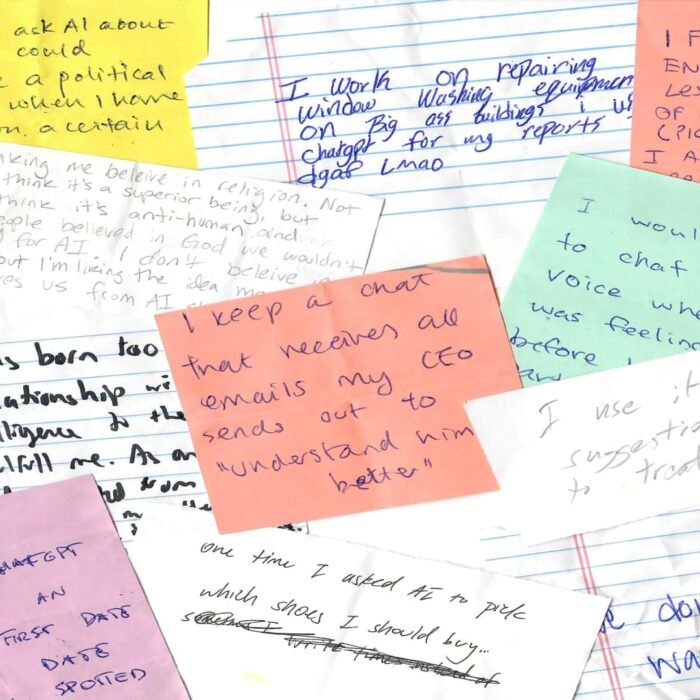 ask AI about
could
a political
when I home
on a certain
I work on repairing
window washing equipment
on Big ass buildings i us
chatgpt for my reports
dgaf Lmao
I F
EN
LES
OF
I A
king me beleive in religion. Not
think it's a superior being, but
think it's anti-human and
people believed in God we wouldn't
for AI. I don't beleive
but I'm liking the idea
us from AI
I woul
to chat
voice whe
was feelin
before
I keep a chat
that receives all
emails my CEO
sends out to
"understand him
better"
s born too
lationship wi
lligence to the
lfill me. As an
from
I use it
suggestio
to treat
HATGPT
AN
FIRST DATE
DATE
SPOTTED
one time I asked AI to pick
which shoes I should buy...
write times instead of
e do
wa